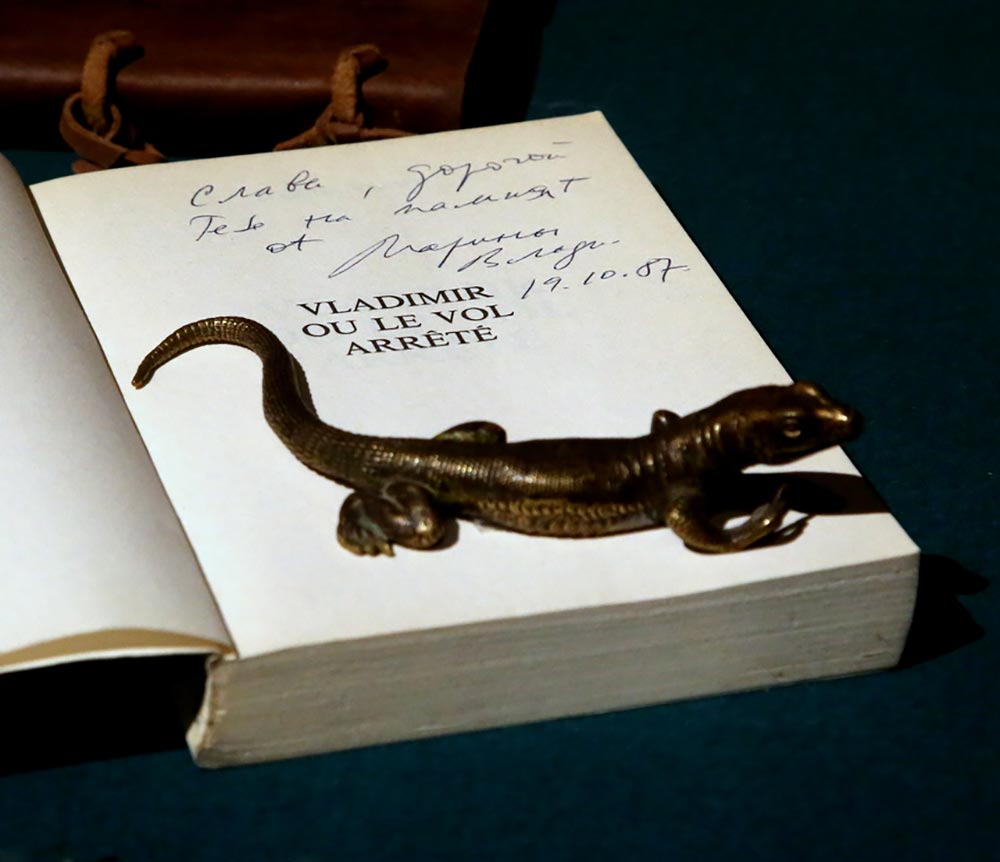 Слава, дорогой
Тебе на памият
от Марины
Влади.
19.10.87.
VLADIMIR
OU LE VOL
ARRÊTÉ